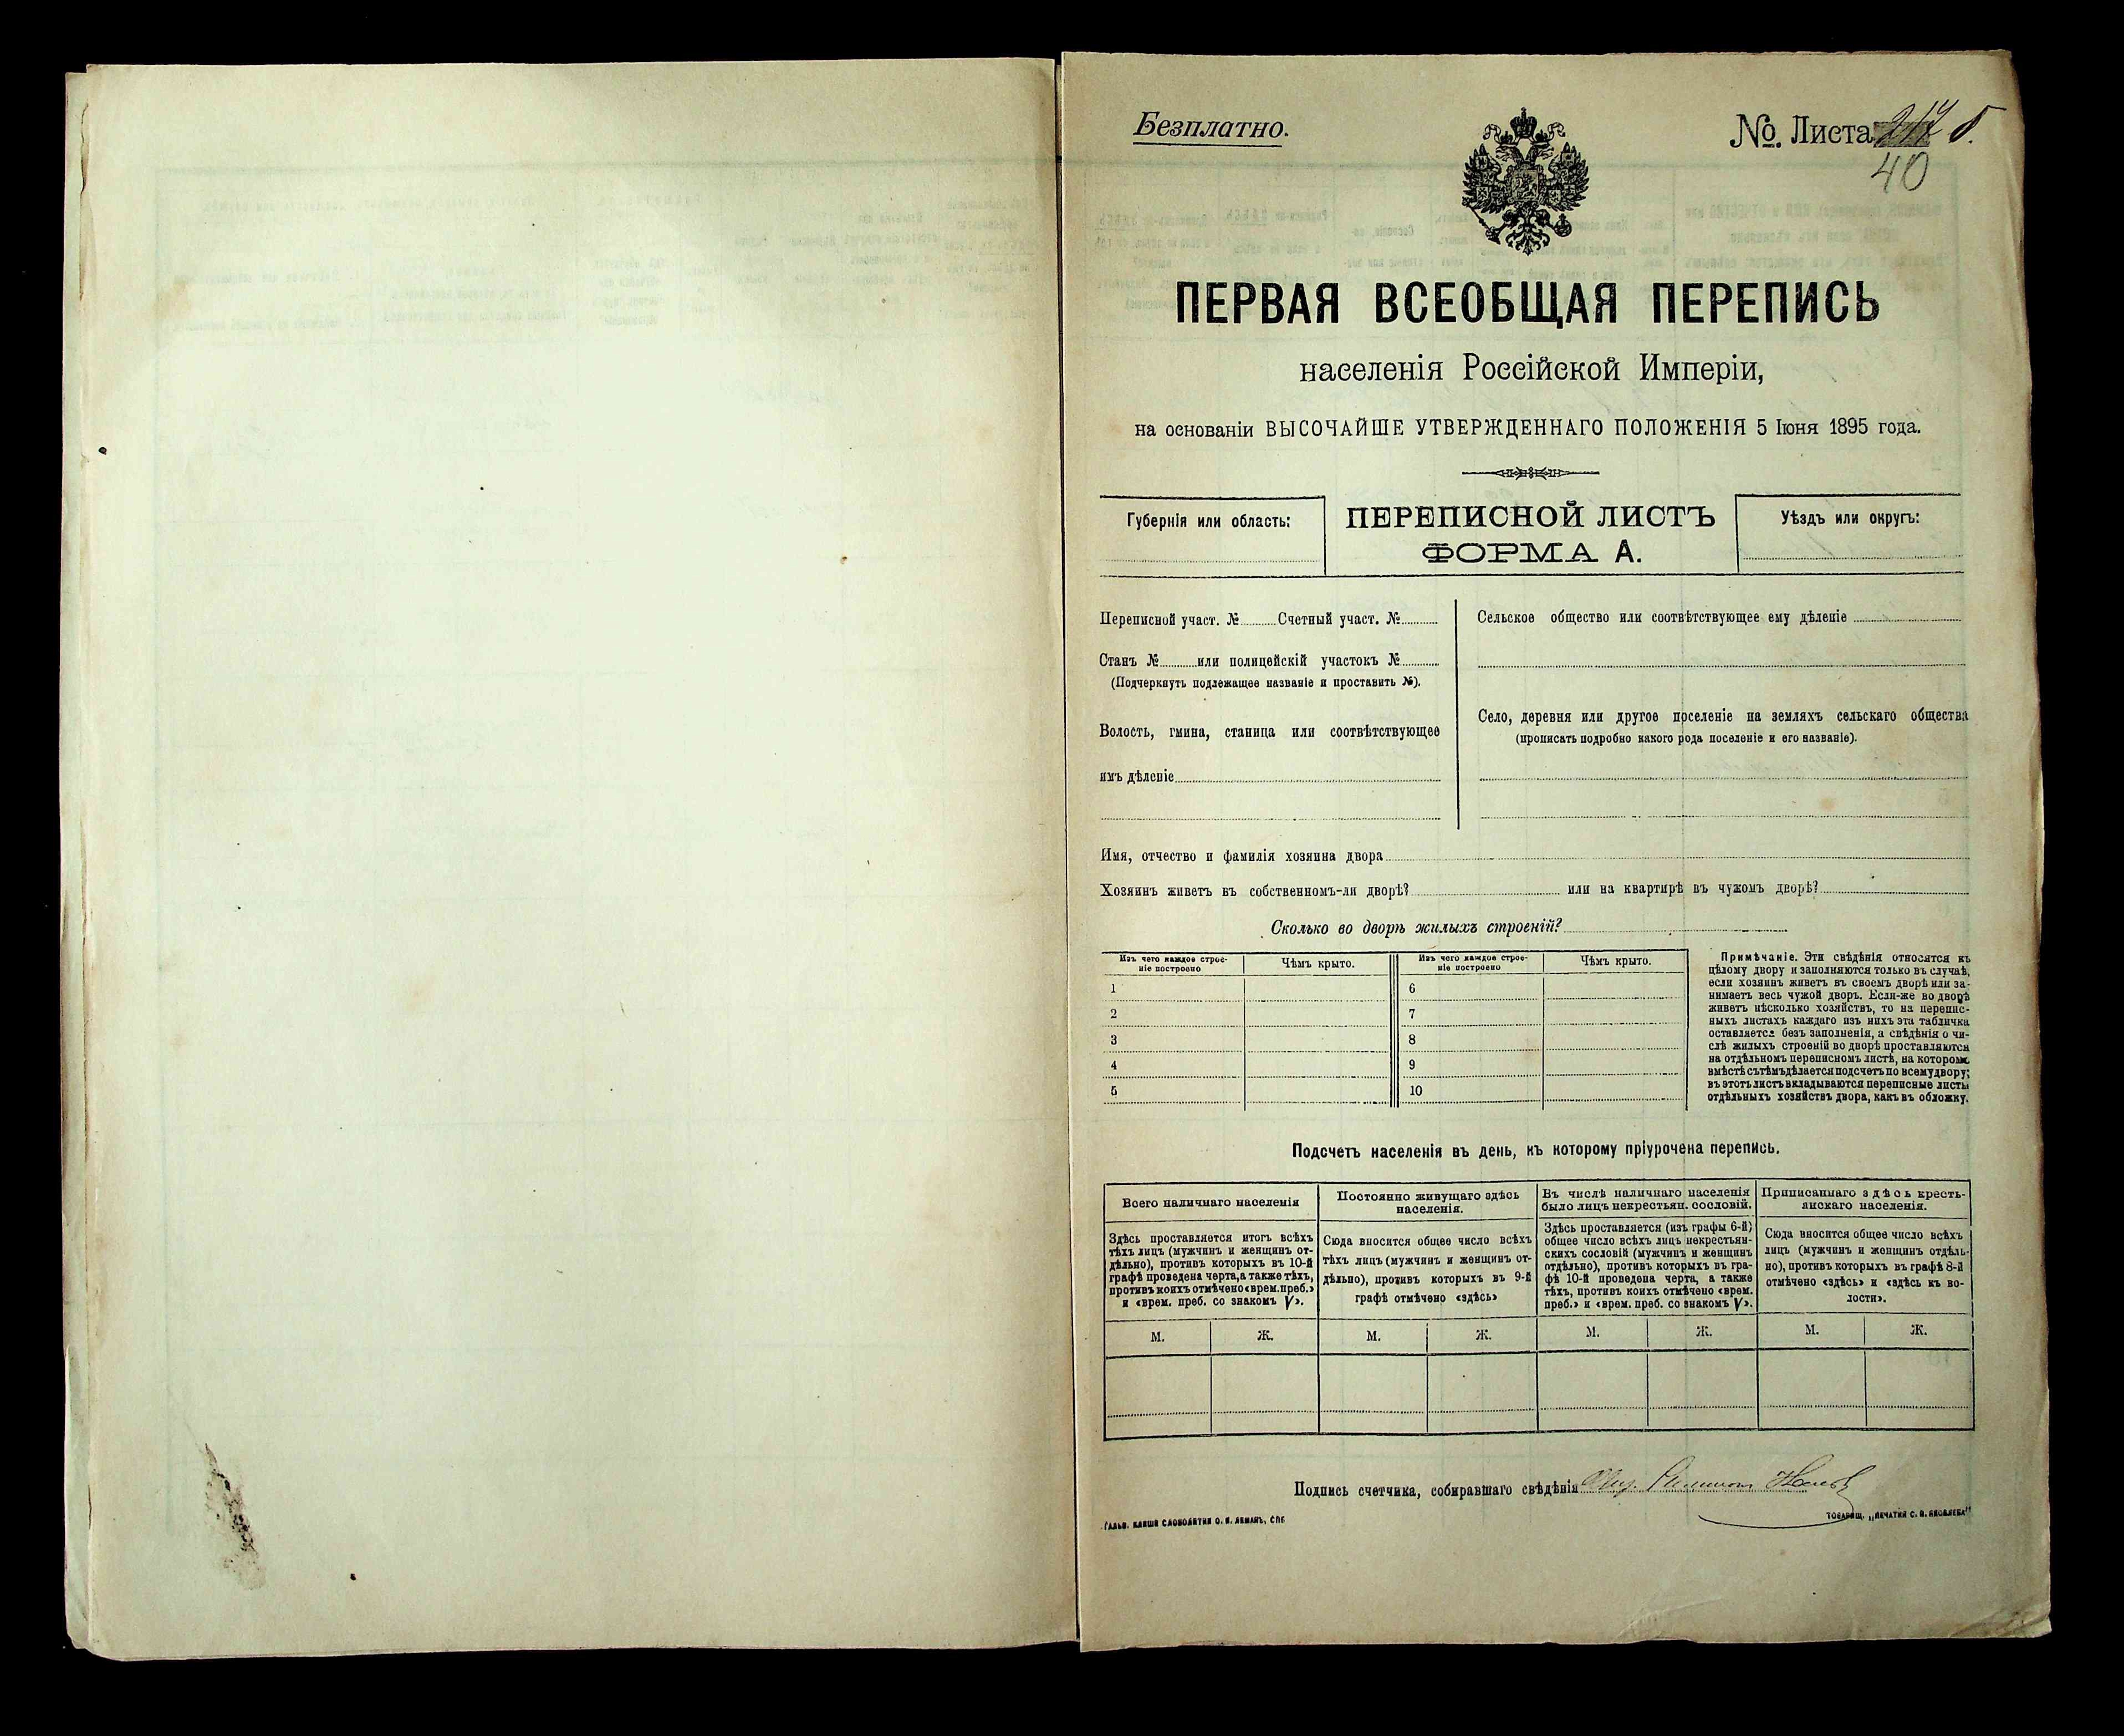 Безплатно.
№. Листа
40
ПЕРВАЯ ВСЕОБЩАЯ ПЕРЕПИСЬ
населенія Россійской Имперіи,
на основаніи ВЫСОЧАЙШЕ УТВЕРЖДЕННАГО ПОЛОЖЕНІЯ 5 Іюня 1895 года.
Губернія или область:
ПЕРЕПИСНОЙ ЛИСТЪ
ФОРМА А.
Уѣздъ или округъ:
Переписной участ. № Счетный участ. №
Станъ № или полицейскій участокъ №
(Подчеркнуть подлежащее названіе и проставить №).
Волость, гмина, станица или соотвѣтствующее
имъ дѣленіе
Сельское общество или соотвѣтствующее ему дѣленіе
Село, деревня или другое поселеніе на земляхъ сельскаго общества
(прописать подробно какого рода поселеніе и его названіе).
Имя, отчество и фамилія хозяина двора
Хозяинъ живетъ въ собственномъ-ли дворѣ? или на квартирѣ въ чужомъ дворѣ?
Сколько во дворѣ жилыхъ строеній?
Изъ чего каждое строе-
ніе построено
Чѣмъ крыто.
1
2
3
4
5
Изъ чего каждое строе-
ніе построено
Чѣмъ крыто.
6
7
8
9
10
Примѣчаніе. Эти свѣдѣнія относятся къ
цѣлому двору и заполняются только въ случаѣ,
если хозяинъ живетъ въ своемъ дворѣ или за-
нимаетъ весь чужой дворъ. Если-же во дворѣ
живетъ нѣсколько хозяйствъ, то на перепис-
ныхъ листахъ каждаго изъ нихъ эта табличка
оставляется безъ заполненія, а свѣдѣнія о чи-
слѣ жилыхъ строеній во дворѣ проставляются
на отдѣльномъ переписномъ листѣ, на которомъ
вмѣстѣ съ тѣмъ дѣлается подсчетъ по всему двору;
въ этотъ листъ вкладываются переписные листы
отдѣльныхъ хозяйствъ двора, какъ въ обложку.
Подсчетъ населенія въ день, къ которому пріурочена перепись.
Всего наличнаго населенія
Здѣсь проставляется итогъ всѣхъ
тѣхъ лицъ (мужчинъ и женщинъ от-
дѣльно), противъ которыхъ въ 10-й
графѣ проведена черта, а также тѣхъ,
противъ коихъ отмѣчено «врем. преб.»
и «врем. преб. со знакомъ V».
М. Ж.
Постоянно живущаго здѣсь
населенія.
Сюда вносится общее число всѣхъ
тѣхъ лицъ (мужчинъ и женщинъ от-
дѣльно), противъ которыхъ въ 9-й
графѣ отмѣчено «здѣсь»
М. Ж.
Въ числѣ наличнаго населенія
было лицъ некрестьян. сословій.
Здѣсь проставляется (изъ графы 6-й)
общее число всѣхъ лицъ некрестьян-
скихъ сословій (мужчинъ и женщинъ
отдѣльно), противъ которыхъ въ гра-
фѣ 10-й проведена черта, а также
тѣхъ, противъ коихъ отмѣчено «врем.
преб.» и «врем. преб. со знакомъ V».
М. Ж.
Приписаннаго здѣсь кресть-
янскаго населенія.
Сюда вносится общее число всѣхъ
лицъ (мужчинъ и женщинъ отдѣль-
но), противъ которыхъ въ графѣ 8-й
отмѣчено «здѣсь» и «здѣсь къ во-
лости».
М. Ж.
Подпись счетчика, собиравшаго свѣдѣнія
Гальв. клише словолитни О. И. Леманъ, СПБ
Товарищ. „Печатня С. П. Яковлева"